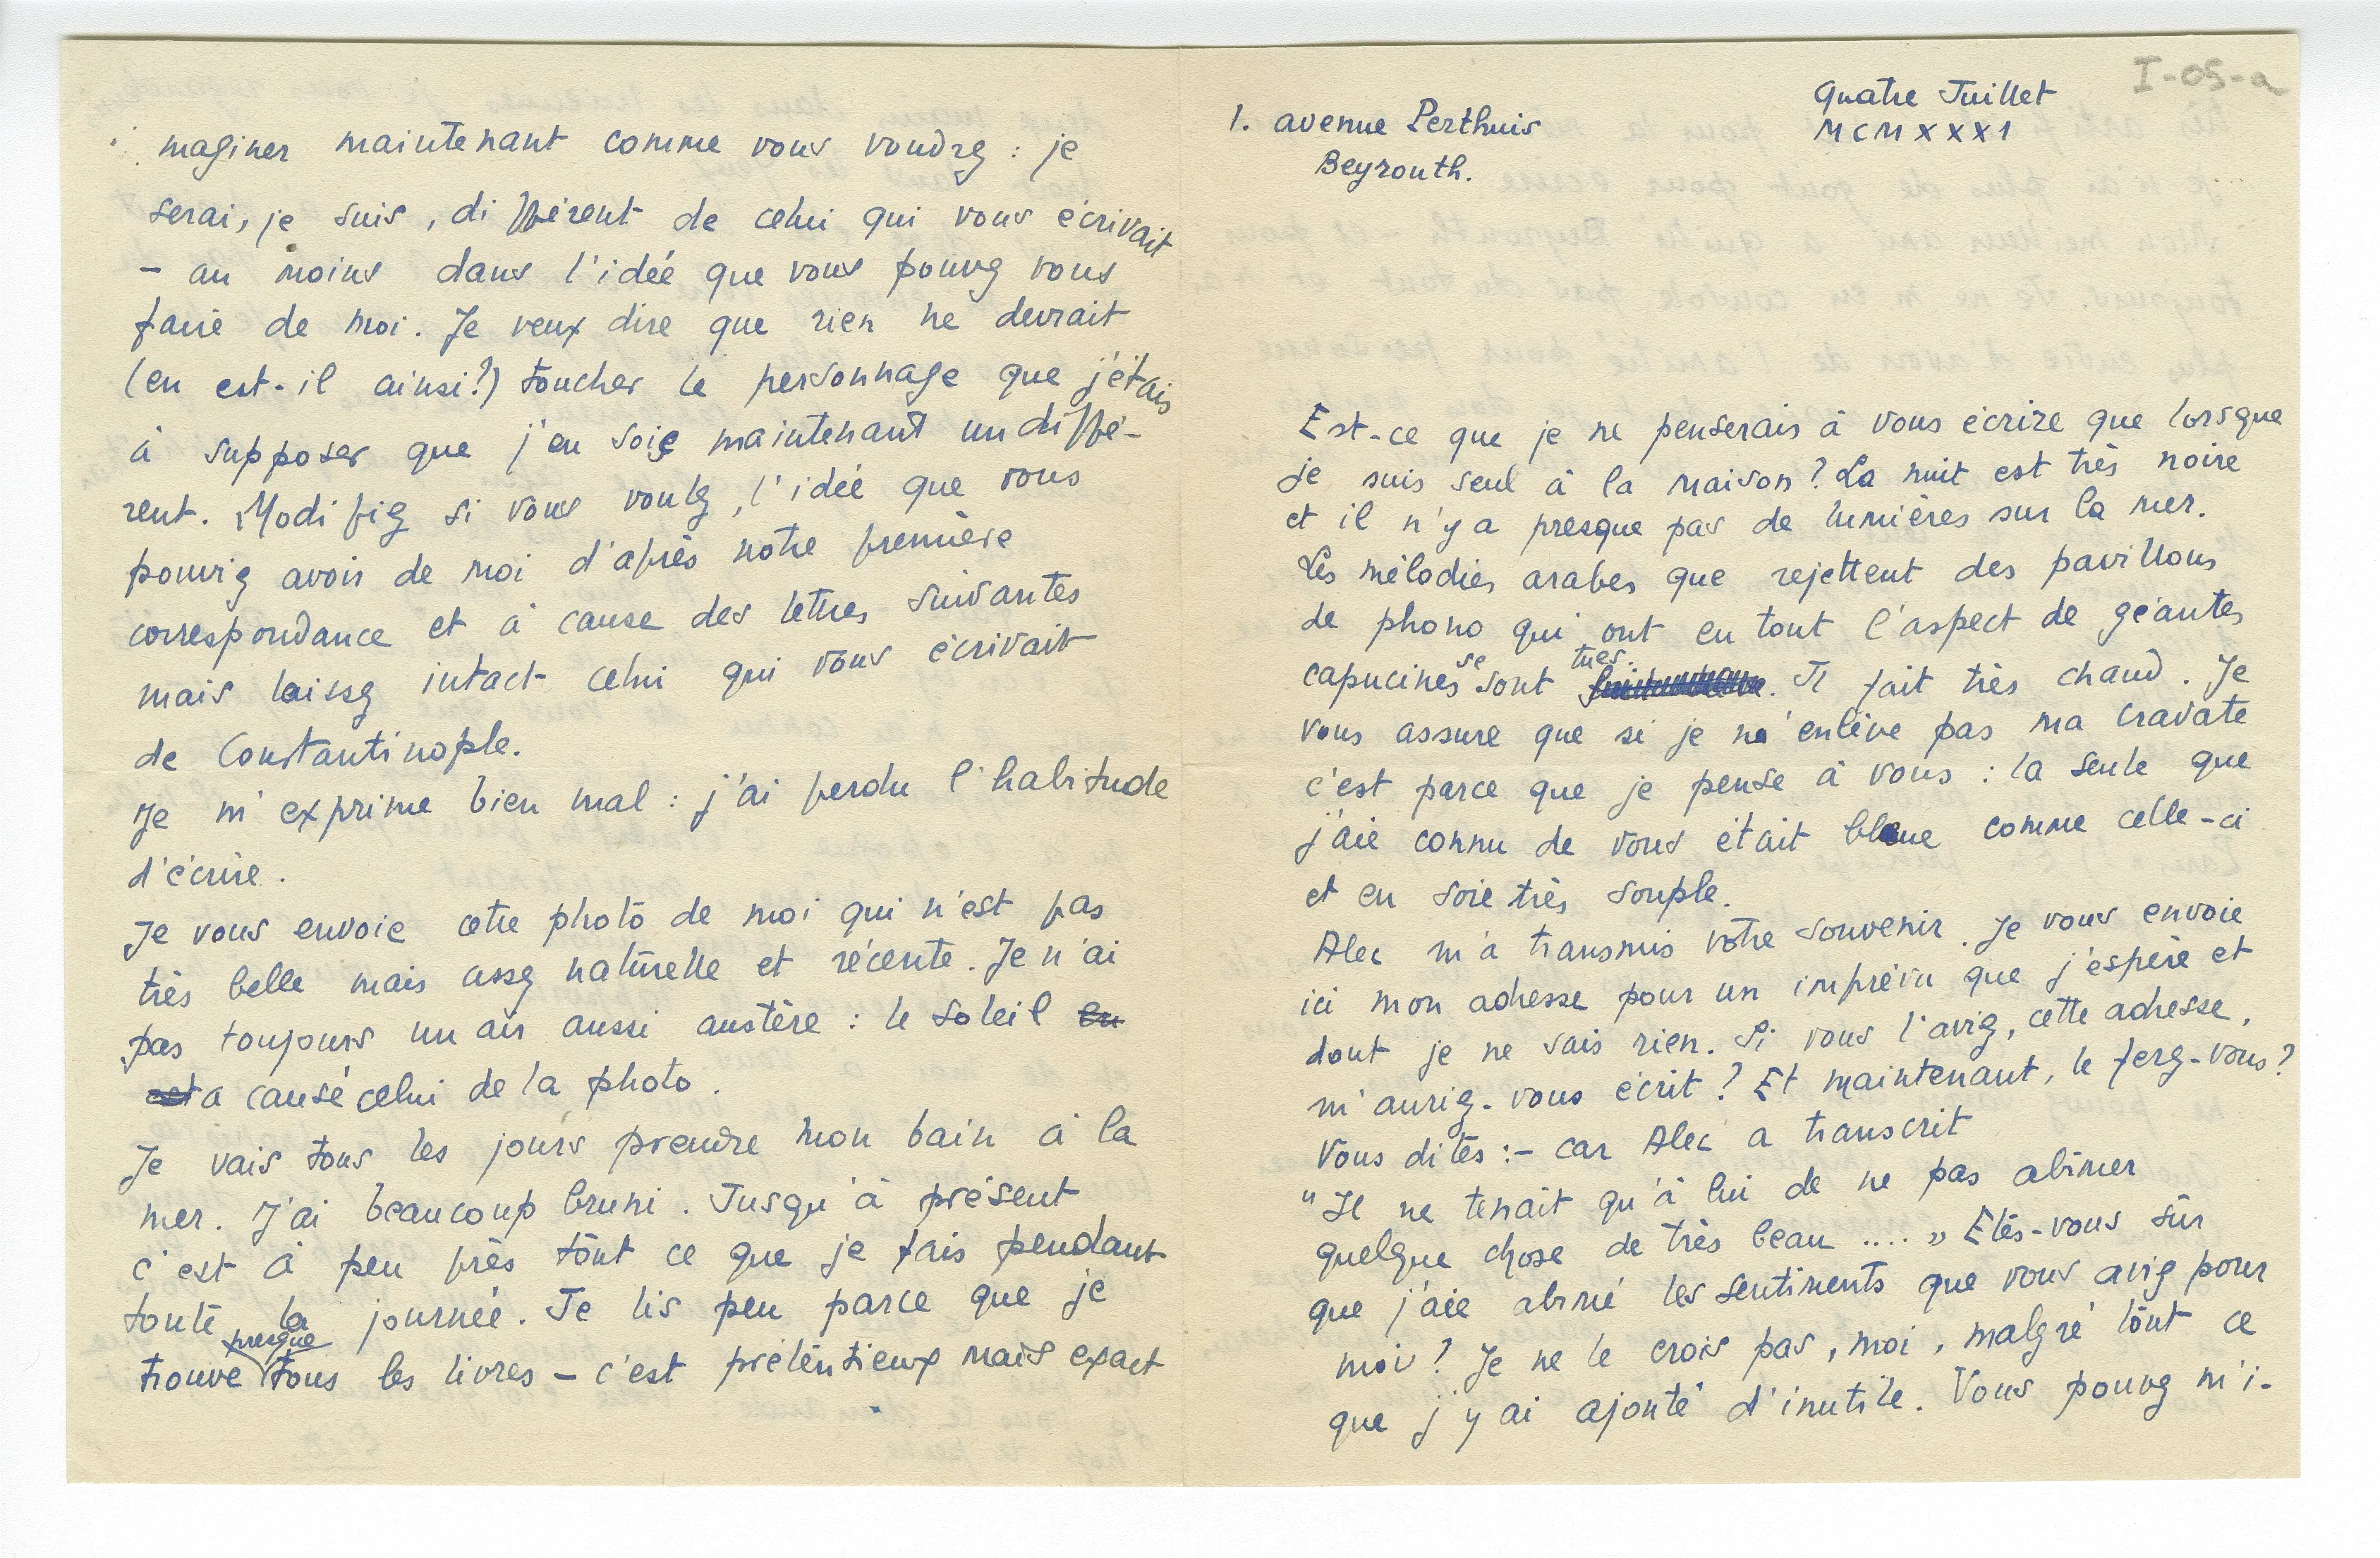 I-05-a
1. avenue Perthuis
Beyrouth.
Quatre Juillet
MCMXXXI
Est-ce que je ne penserais à vous écrire que lorsque
je suis seul à la maison ? La nuit est très noire
et il n'y a presque pas de lumières sur la mer.
Les mélodies arabes que rejettent des pavillons
de phono qui ont en tout l'aspect de géantes
capucines se sont tues. Il fait très chaud. Je
vous assure que si je n'enlève pas ma cravate
c'est parce que je pense à vous : la seule que
j'aie connu de vous était bleue comme celle-ci
et en soie très souple.
Alec m'a transmis votre souvenir. Je vous envoie
ici mon adresse pour un imprévu que j'espère et
dont je ne sais rien. Si vous l'aviez, cette adresse,
m'auriez-vous écrit ? Et maintenant, le ferez-vous ?
Vous dites :- car Alec a transcrit
"Il ne tenait qu'à lui de ne pas abîmer
quelque chose de très beau .... » Etes-vous sûr
que j'aie abîmé les sentiments que vous aviez pour
moi ? Je ne le crois pas, moi, malgré tout ce
que j'y ai ajouté d'inutile. Vous pouvez m'i-
maginer maintenant comme vous voudrez : je
serai, je suis, différent de celui qui vous écrivait
- au moins dans l'idée que vous pouvez vous
faire de moi. Je veux dire que rien ne devrait
(en est-il ainsi ?) toucher le personnage que j'étais
à supposer que j'en soie maintenant un diffé-
rent. Modifiez si vous voulez, l'idée que vous
pouviez avoir de moi d'après notre première
correspondance et à cause des lettres suivantes
mais laissez intact celui qui vous écrivait
de Constantinople.
Je m'exprime bien mal : j'ai perdu l'habitude
d'écrire.
Je vous envoie cette photo de moi qui n'est pas
très belle mais assez naturelle et récente. Je n'ai
pas toujours un air aussi austère : le soleil en
est a causé celui de la photo.
Je vais tous les jours prendre mon bain à la
mer. J'ai beaucoup bruni. Jusqu'à présent
c'est à peu près tout ce que je fais pendant
toute la journée. Je lis peu parce que je
trouve presque tous les livres - c'est prétentieux mais exact